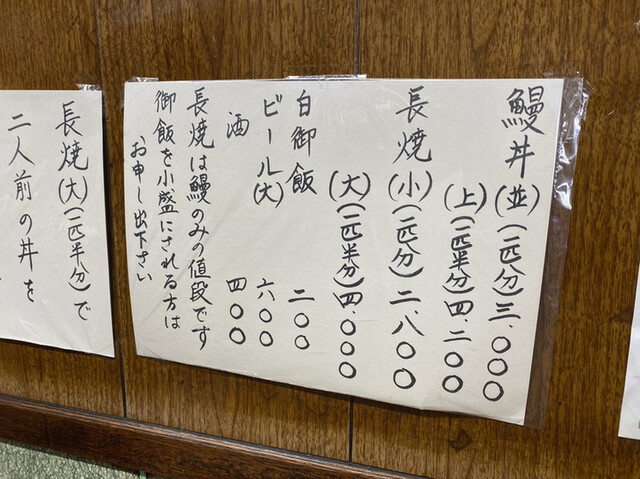 鰻丼(並)(一匹分)三、〇〇〇
(上)(一匹半分)四、二〇〇
長焼(小)(一匹分)二、八〇〇
(大)(一匹半分)四、〇〇〇
白御飯 二〇〇
ビール(大) 六〇〇
酒 四〇〇
長焼は鰻のみの値段です
御飯を小盛にされる方は
お申し出下さい
長焼(大)(一匹半分)で
二人前の丼を